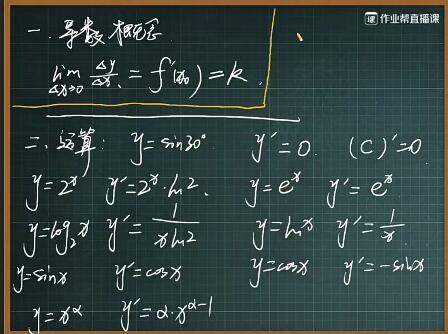 作业帮直播课
一.导数 概念
lim Δx→0 Δy/Δx = f'(x₀) = k.
二.运算: y=sin30° y'=0. (C)'=0
y=2ˣ y'=2ˣ·ln2. y=eˣ y'=eˣ
y=log₂x y'=1/(xln2) y=lnx y'=1/x.
y=sinx y'=cosx y=cosx y'=-sinx
y=x^α y'=α·x^(α-1)